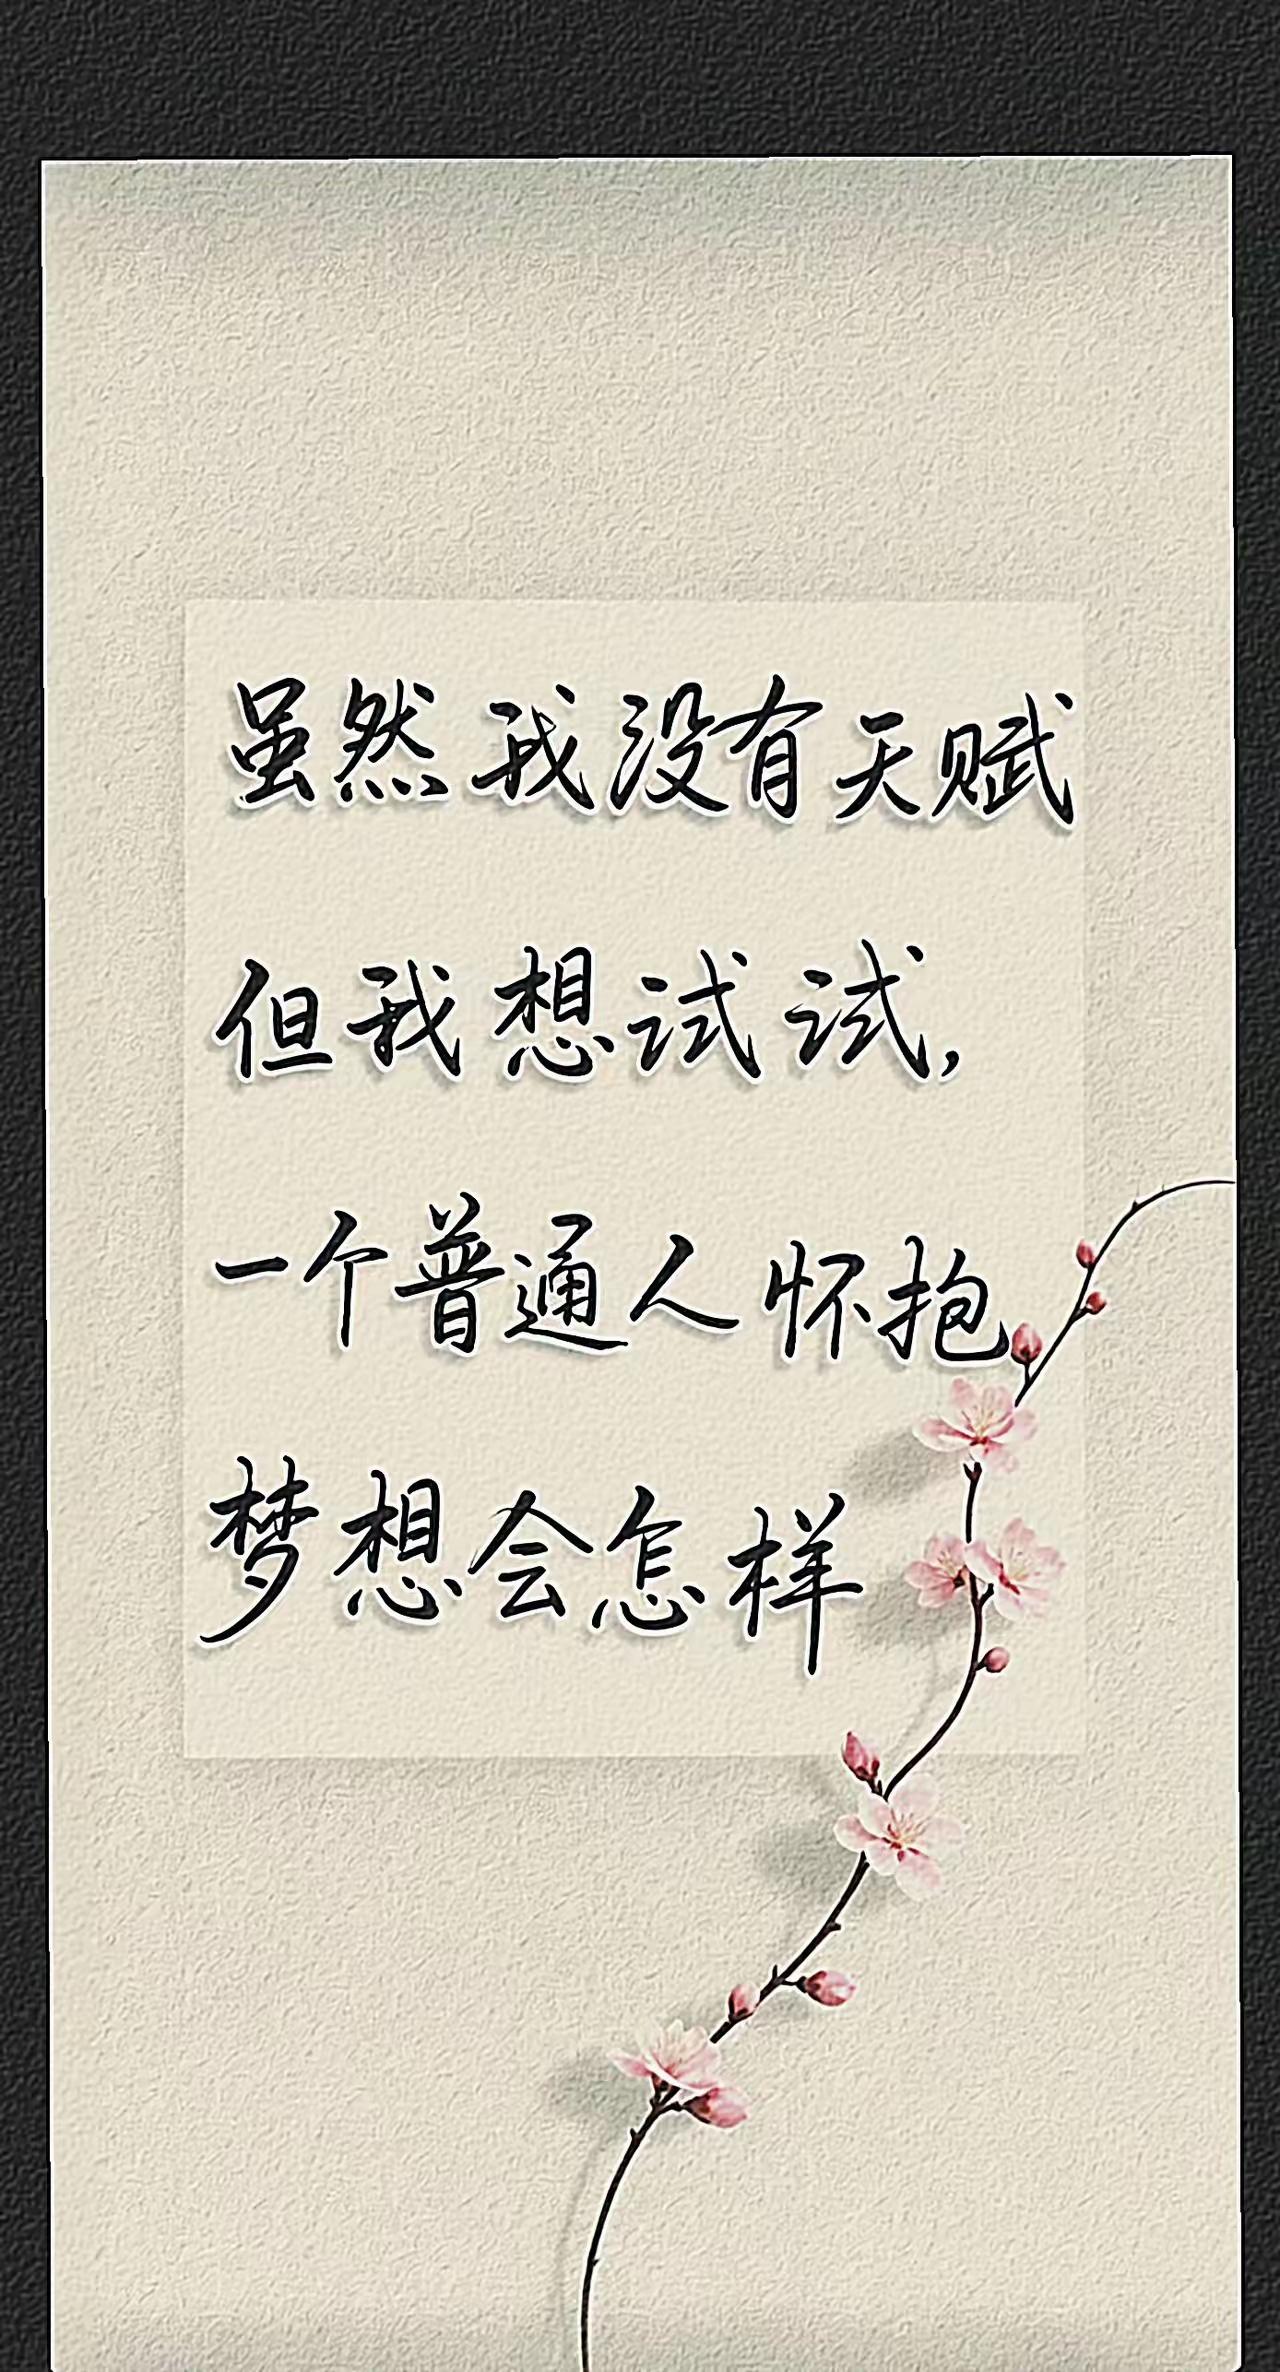 虽然我没有天赋
但我想试试，
一个普通人怀抱
梦想会怎样